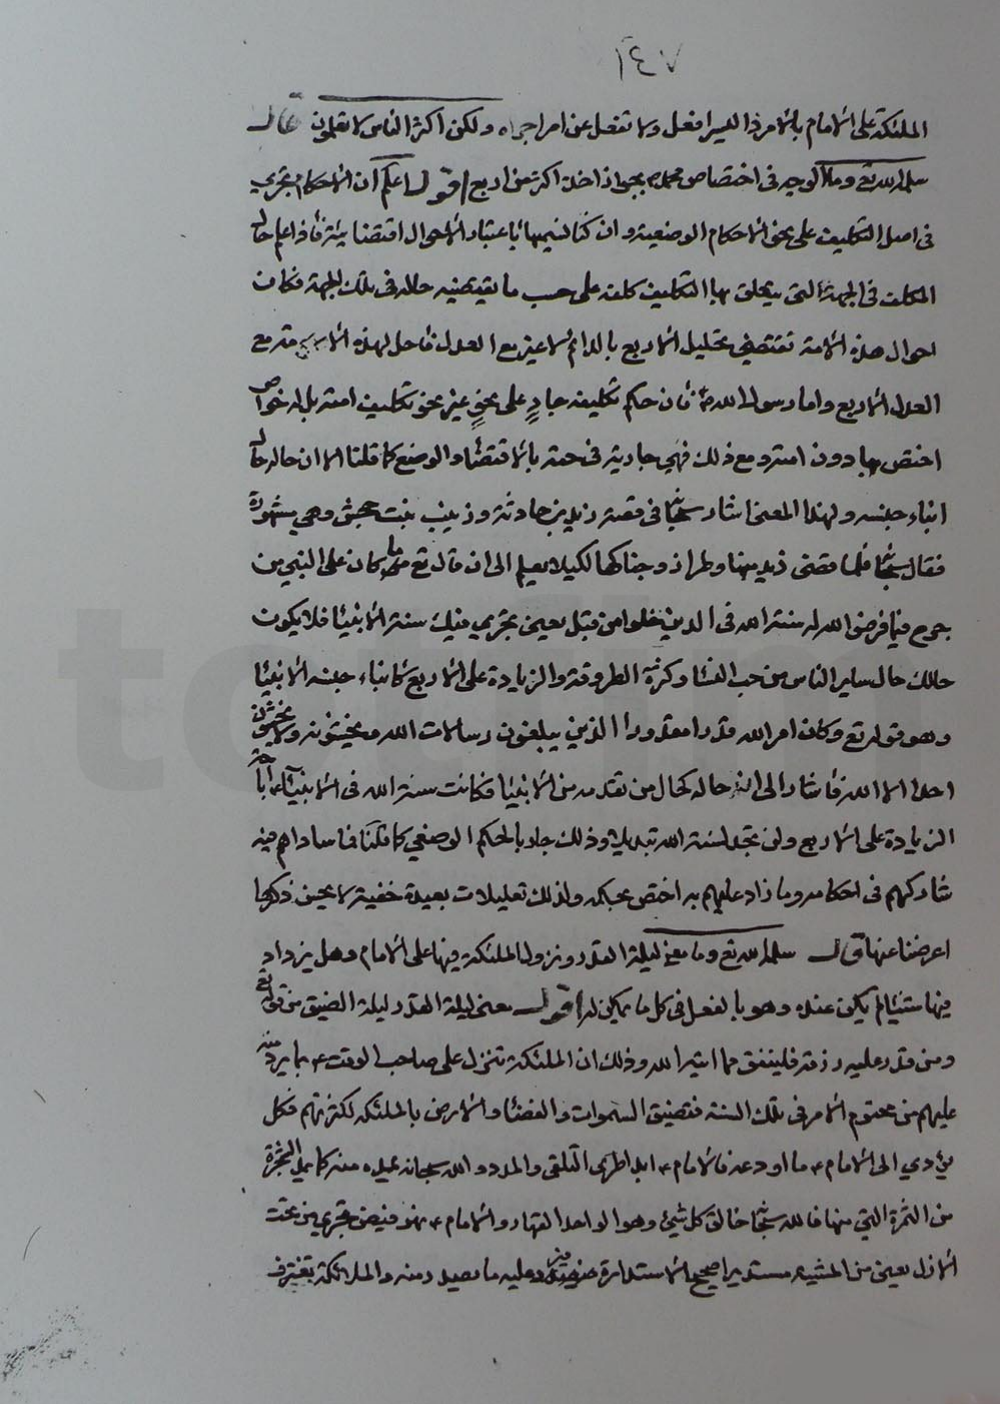 ٧٤١
الملئكة على الامام بالامر ذا اليسر افعل ولا تفعل عن امر اجراه ولكن اكثر الناس لا يعلمون قال
سلمه الله تع وما الوجه في اختصاص محمد ص بجواز اخذ اكثر من اربع اقول اعلم ان الاحكام تجري
في اصل التكليف على نحو الاحكام الوضعية وان كنا نسميها باعتبار الاحوال اقتضائية فاذا علم حال
المكلف في الجهة التي يتعلق بها التكليف كلفه على حسب ما يقتضيه حاله في تلك الجهة فكان
احوال هذه الامة تقتضي تحليل الاربع بالدائم لا غير مع العدل فاحل لهذه الامة مع
العدل الاربع واما رسول الله ص فان حكم تكليفه جارٍ على نحوٍ غير نحو تكليف امته بل له خواص
اختص بها دون امته ومع ذلك فهي جارية في حقه بالاقتضاء والوضع كما قلنا الا ان حاله حال
ابناء جنسه ولهذا المعنى اشار سبحانه في قصة زيد بن حارثة وزينب بنت جحش وهي مشهورة
فقال سبحانه فلما قضى زيد منها وطرا زوجناكها لكيلا يعلم الى ان قال تع ما كان على النبي من
حرج فيما فرض الله له سنة الله في الذين خلوا من قبل يعني تجري فيك سنة الانبياء فلا يكون
حالك حال ساير الناس من حب النساء وكثرة الطروقة والزيادة على الاربع كابناء جنسه الانبياء
وهو قوله تع وكان امر الله قدرا مقدورا الذين يبلغون رسالات الله ويخشونه ولا يخشون
احدا الا الله فاشار الى ان حاله كحال من تقدمه من الانبياء فكانت سنة الله في الانبياء اباحة
الزيادة على الاربع ولن تجد لسنة الله تبديلا وذلك جار بالحكم الوضعي كما قلنا فما ساواهم فيه
شاركهم في احكامه وما زاد عليهم به اختص بحكمه ولذلك تعليلات بعيدة خفية لا يحسن ذكرها
اعرضنا عنها قال سلمه الله تع وما معنى ليلة القدر ونزول الملئكة فيها على الامام وهل يزداد
فيها شيئا لم يكن عنده وهو بالفعل في كل ما يمكن له اقول معنى ليلة القدر ليلة الضيق من قوله تع
ومن قدر عليه رزقه فلينفق مما اتيه الله وذلك ان الملئكة تنزل على صاحب الوقت ع بما يرد منه
عليهم من محتوم الامر في تلك السنة فتضيق السموات والفضاء والارض بالملئكة لكثرتهم فكل
يؤدي الى الامام ع ما اودعه فالامام ع ابدا طري التلقي والمدد والله سبحانه يمده منه كما يمد الشجرة
من الثمرة التي منها فالله سبحانه خالق كل شيئ وهو الواحد القهار والامام ع نهر فيض يجري من تحت
الازل يعني من المشية مستديرا صحيح الاستدارة وعليه ما يصدر منه والملائكة تغترف